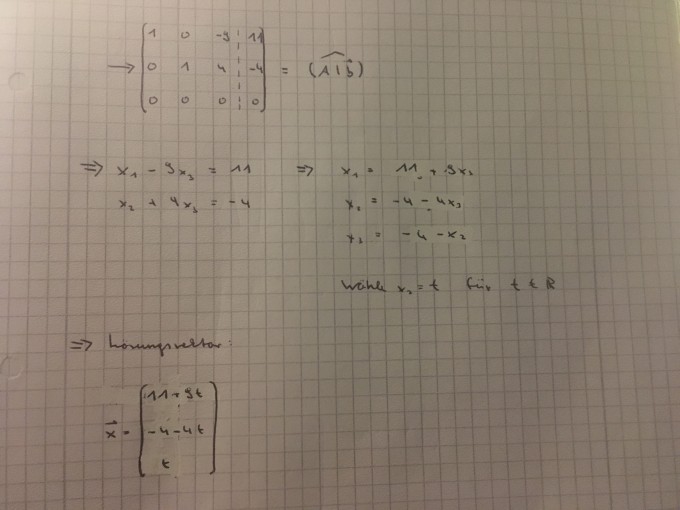 → ( 1 0 -9 | 11
0 1 4 | -4
0 0 0 | 0 ) = (A|b)
⇒ x₁ - 9x₃ = 11 ⇒ x₁ = 11 + 9x₃
x₂ + 4x₃ = -4 x₂ = -4 - 4x₃
x₃ = -4 - x₂
Wähle x₃ = t für t ∈ ℝ
⇒ Lösungsvektor:
x⃗ = ( 11 + 9t
-4 - 4t
t )